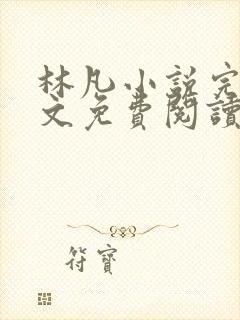 林凡小說完
文免費閱讀
符寶